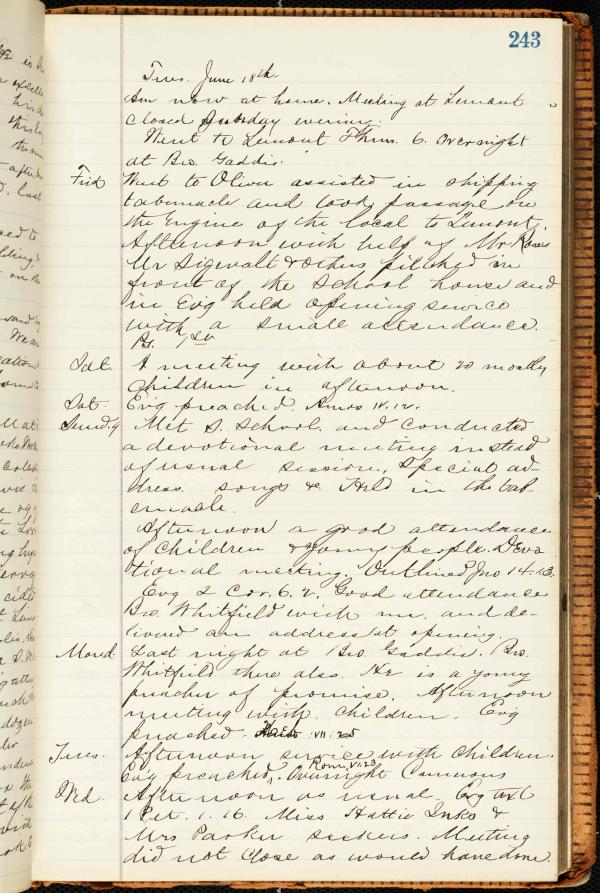 243
Tues. June 18th
Am now at home. Meeting at Lemont
closed Sunday evening.
Went to Lemont Thurs. 6. Over night
at Bro. Gaddis.
Frid. Went to Oliver assisted in shipping
tabernacle and took passage on
the Engine of the local to Lemont.
Afternoon with help of Mr
Mr Sigevalt & others pitched in
front of the School house and
in Evg held opening service
with a small attendance.
Ps.
Sat. A meeting with about 20 mostly
Children in afternoon.
Sat. Ev'g preached. Amos IV. 12.
Sund. 9 Met S. School. and Conducted
a devotional meeting instead
of usual session. Special ad-
dress. songs &c. Held in the tab-
ernacle.
Afternoon a good attendance
of Children & young people. Devo
tional meeting. Outlined Jno 14-13.
Evg 2 Cor. 6. 2. Good attendance
Bro. Whitfield with me. and de-
livered an address at opening.
Mond. Last night at Bro. Gaddis. Bro.
Whitfield there also. He is a young
preacher of promise. Afternoon
meeting with Children. Evg
preached Heb. VII. 25
Tues. Afternoon service with children.
Ev'g preached, Rom. VI. 23. Overnight
Wed. Afternoon as usual. Evg text
1 Pet. 1. 16. Miss Hattie Inks &
Mrs Parker seekers. Meeting
did not close as would have done